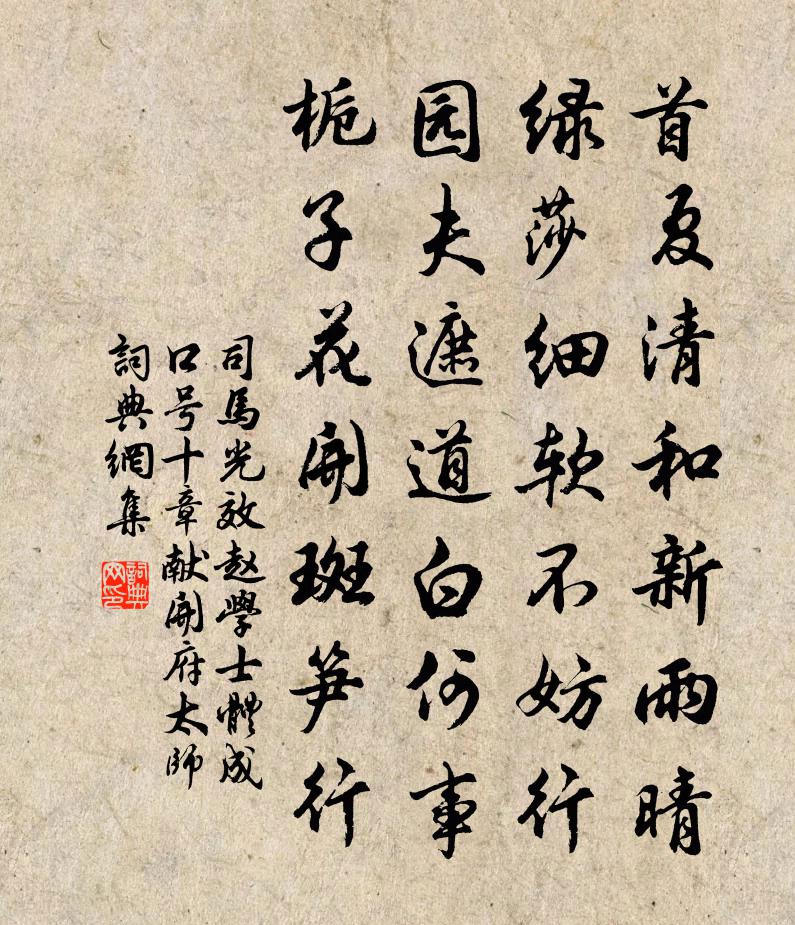 首夏清和新雨晴
绿莎细软不妨行
园夫遮道白何事
栀子花開斑笋行
司馬光效赵學士體成
口号十章献開府太師
詞典網集
詞典网印